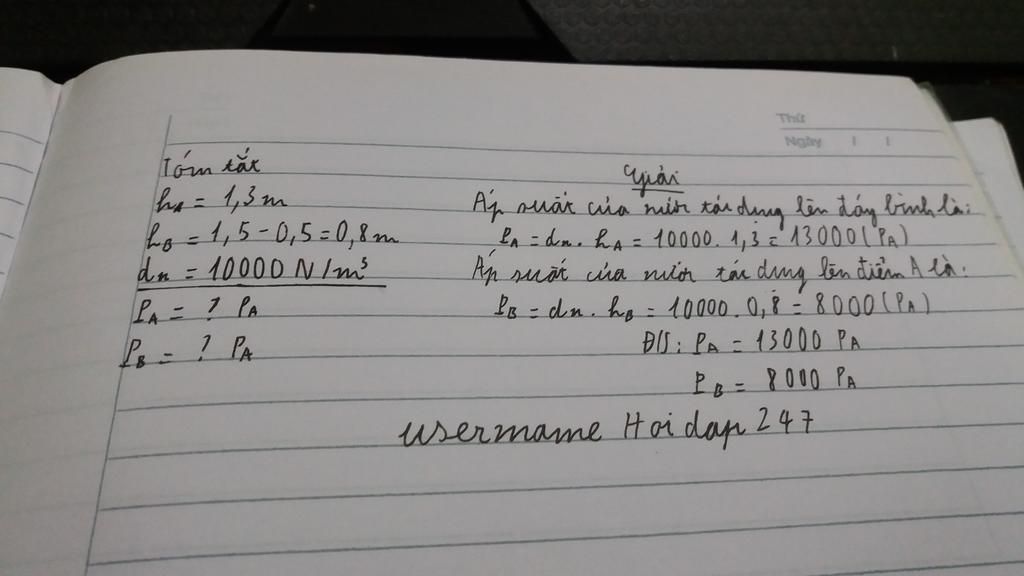 Thứ
Ngày / /
Tóm tắt
hA = 1,3 m
hB = 1,5 - 0,5 = 0,8 m
dn = 10000 N/m³
PA = ? PA
PB = ? PA
Giải
Áp suất của nước tác dụng lên đáy bình là:
PA = dn. hA = 10000. 1,3 = 13000 (PA)
Áp suất của nước tác dụng lên điểm A là:
PB = dn. hB = 10000. 0,8 = 8000 (PA)
Đ/S: PA = 13000 PA
PB = 8000 PA
username Hoidap 247